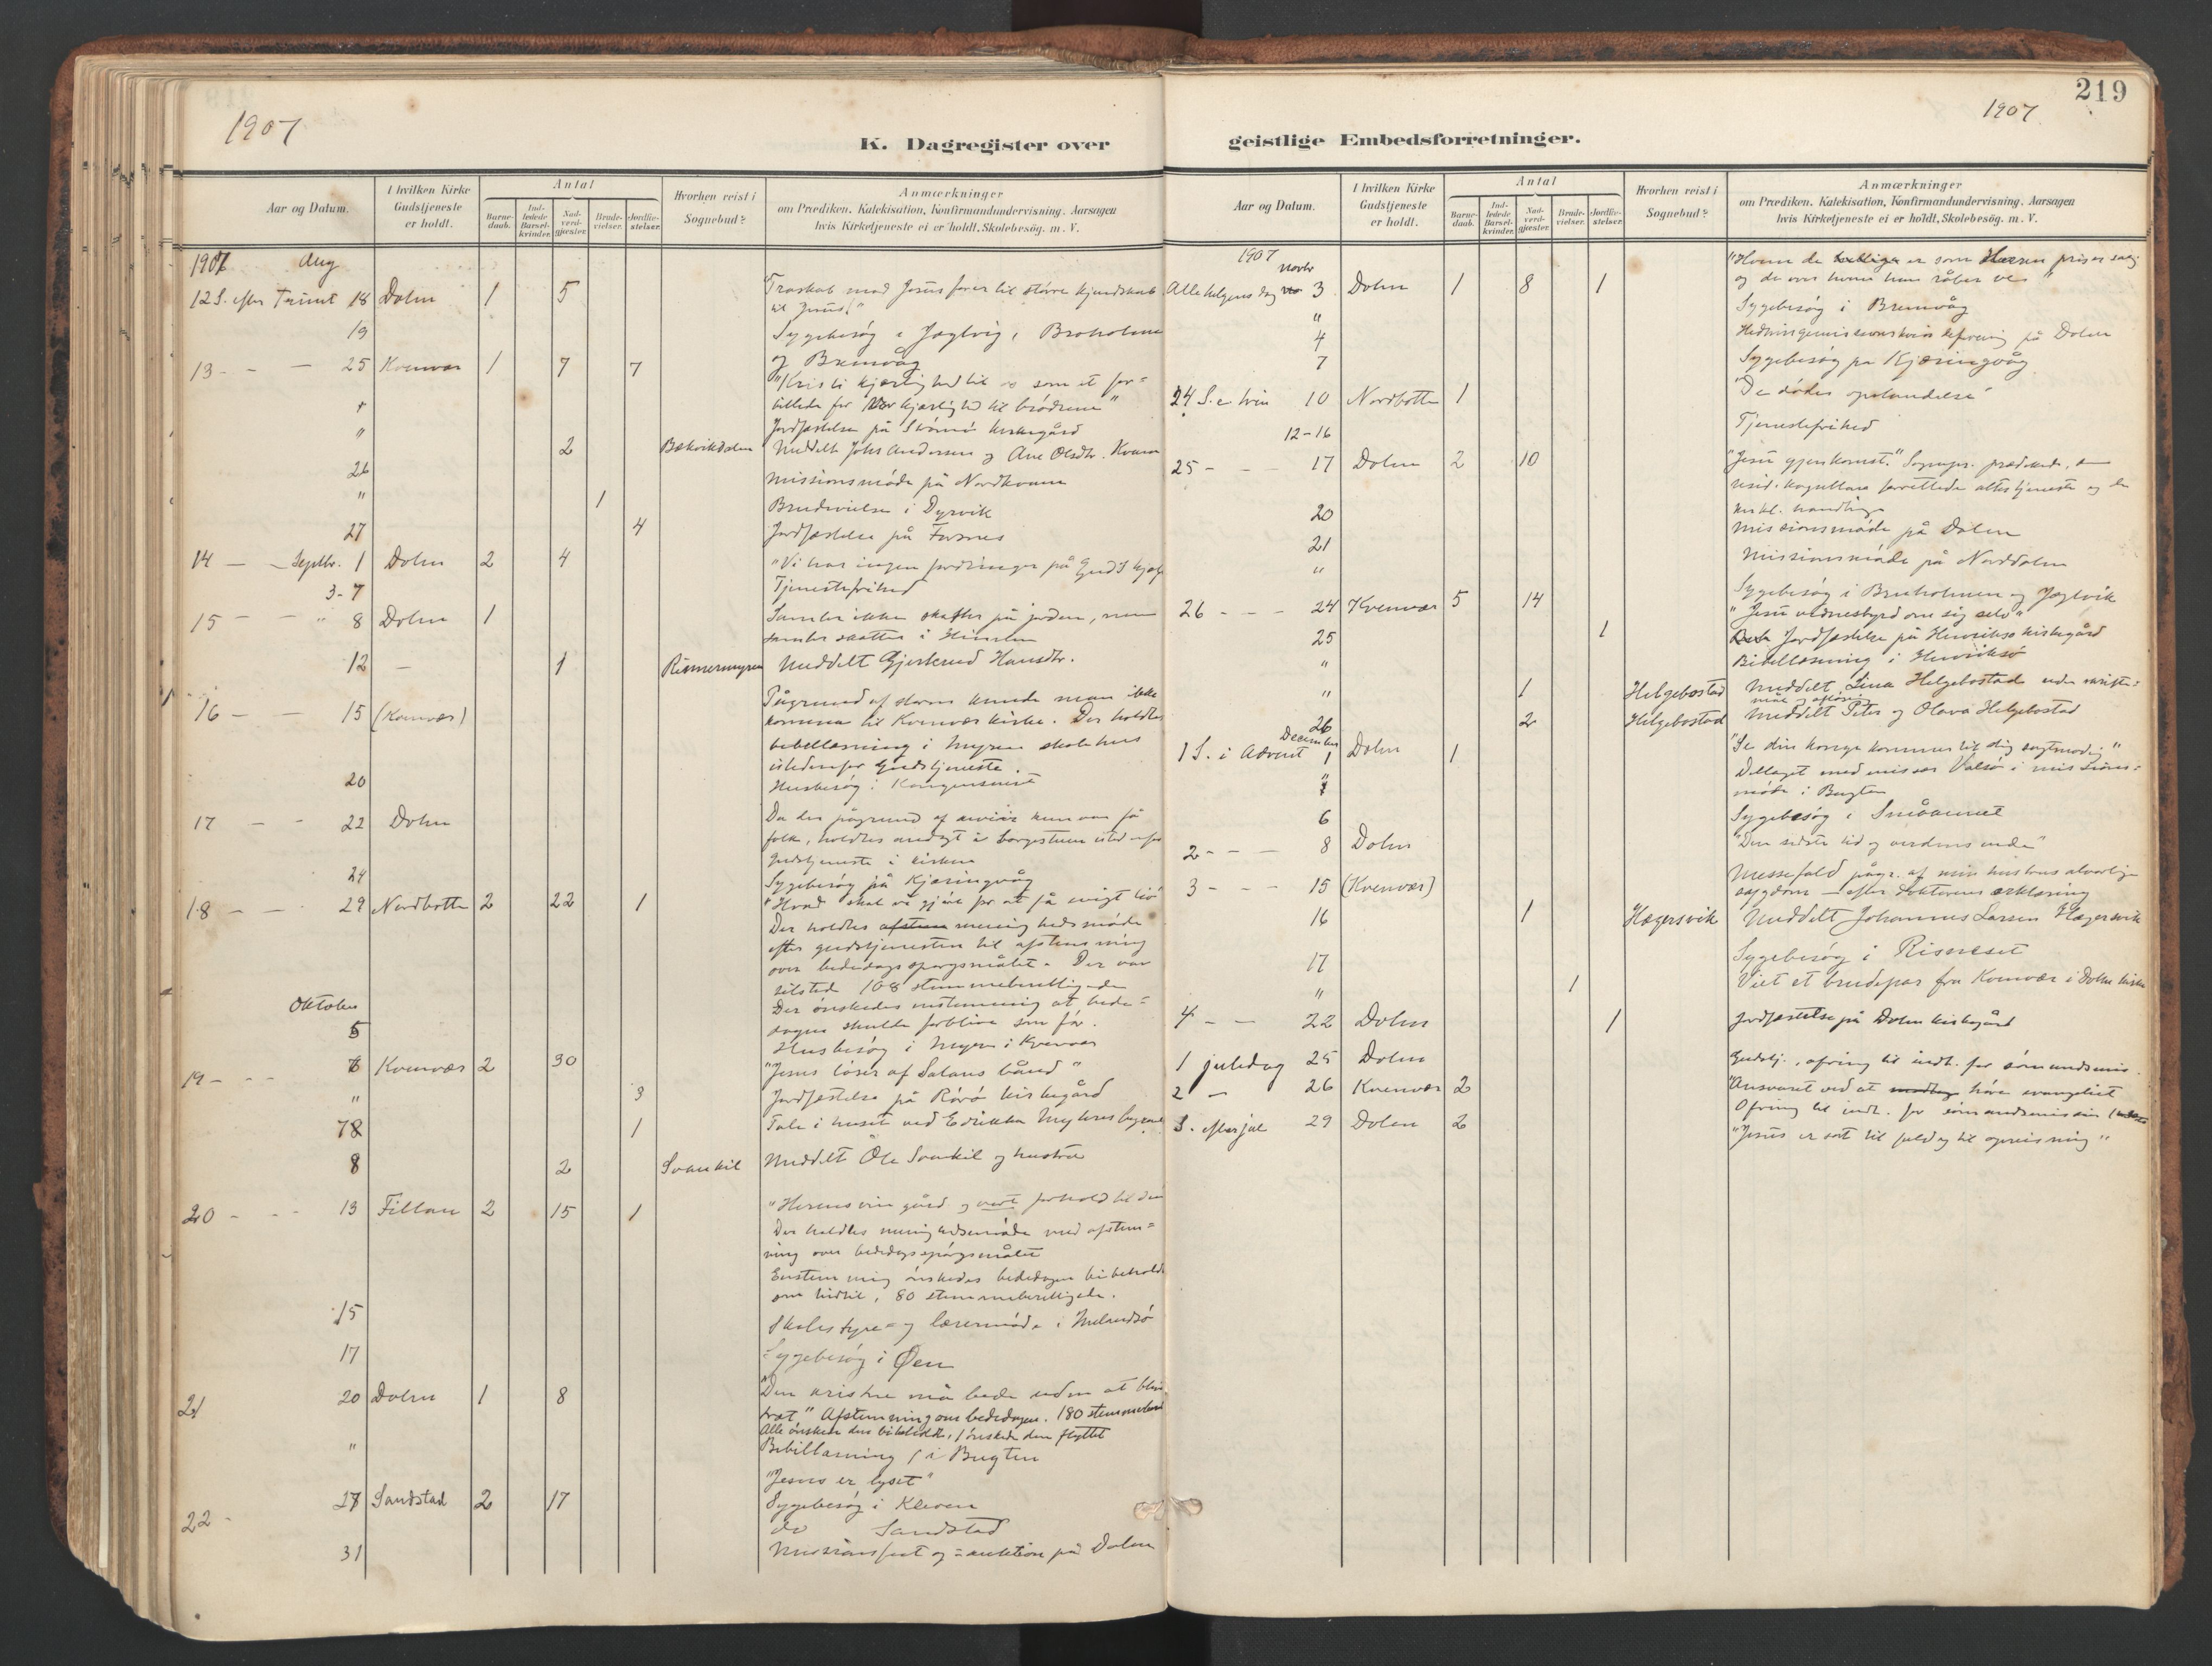 1907
K. Dagregister over
Aar og Datum.
I hvilken Kirke Gudstjeneste er holdt.
Antal
Barne-daab.
Ind-ledede Barsel-kvinder.
Nad-verd-gjæster.
Brude-vielser.
Jordfæ-stelser.
Hvorhen reist i Sognebud?
Anmærkninger
om Prædiken. Katekisation, Konfirmandundervisning. Aarsagen
hvis Kirketjeneste ei er holdt. Skolebesög. m. V.
1907 Aug
12 S. efter Trinit 18 Dolm 1 5 "Troskab mod Jesus fører til større kjendskab
til Jesus!"
19 Sygebesøg i Jøglvig, Broholmen
og Bremvåg
13 - - - 25 Kvenvær 1 7 7 "Kristi kjærlighed til os som et for=
billede for vor kjærlighed til brødrene"
" Jordfæstelse på kirkegård
" 2 Bekvikdalen Meddelt Johs Andersen og Ane Olsdtr.
26 Missionsmøde på Nordkvam
" 1 Brudevielse i Dyrvik
27 4 Jordfæstelse på
14 - - Septbr. 1 Dolm 2 4 "Vi har ingen fordringer på Guds
3-7 Tjenestefrihed
15 - - " 8 Dolm 1 Samler ikke skatter på jorden, men
samler skatter i Himlen
12 - 1 Meddelt Gjertrud Hansdtr.
16 - - 15 (Kvenvær) Pågrund af storm kunde man ikke
komme til Kvenvær kirke. Der holdtes
bibellæsning i Myren skolehus
istedenfor Gudstjeneste
20 Husbesøg i
17 - - 22 Dolm Da der pågrund af uveir kun var få
folk, holdtes andagt i borgestuen istedenfor
gudstjeneste i kirken
24 Sygebesøg på Kjæringvåg
18 - - 29 Nordbotn 2 22 1 "Hvad skal vi gjøre for at få evigt liv
Der holdtes menighedsmøde
efter gudstjenesten til afstemning
over bededagsspørgsmålet. Der var
tilstede 108 stemmeberettigede
Oktober Der ønskedes enstemmig at bede=
dagen skulde forblive som før.
5 Husbesøg i Myren i Kvenvær
19 - - 6 Kvenvær 2 30 "Jesus løser af Satans bånd"
" 3 Jordfæstelse på kirkegård
7 1 Tale i huset ved
8 2 Svankil Meddelt Ole Svankil og hustru
20 - - 13 Fillan 2 15 1 "Herrens vingård og vort forhold til den
Der holdtes menighedsmøde med afstem=
ning over bededagsspørgsmålet
Enstemmig ønskedes bededagen bibeholdt
som hidtil, 80 stemmeberettigede.
15 Skolestyre= og lærermøde i Melandsø
17 Sygebesøg i Øen
21 20 Dolm 1 8 "Den kristne må bede uden at blive
træt" Afstemning om bededagen. 180
Alle ønsker den bibeholdt, 1 ønskede den flyttet
" Bibellæsning i Bugten
22 - 27 Sandstad 2 17 "Jesus er lyset"
Sygebesøg i Kleven
do Sandstad
31 Missionsfest og = auktion på Dolm
219
1907
geistlige Embedsforretninger.
Aar og Datum.
I hvilken Kirke Gudstjeneste er holdt.
Antal
Barne-daab.
Ind-ledede Barsel-kvinder.
Nad-verd-gjæster.
Brude-vielser.
Jordfæ-stelser.
Hvorhen reist i Sognebud?
Anmærkninger
om Prædiken. Katekisation, Konfirmandundervisning. Aarsagen
hvis Kirketjeneste ei er holdt, Skolebesög. m. V.
1907
Novbr "Hvem de er som Herren priser salig
Allehelgensdag 3 Dolm 1 8 1 og de over hvem han råber ve"
" Sygebesøg i Bremvåg
4 på Dolm
7 Sygebesøg på Kjæringvåg
24 S. e. trin 10 Nordbotn 1 "De dødes opstandelse"
12-16 Tjenestefrihed
25 - - - 17 Dolm 2 10 "Jesu gjenkomst." Sognepr. prædikede,
resid. kapellan forrettede altertjeneste og de
kirkl. handlinger
20 Missionsmøde på Dolm
21 Missionsmøde på Norddolm
" Sygebesøg i Bruholmen og Jøglvik
26 - - - 24 Kvenvær 5 14 "Jesu vidnesbyrd om sig selv"
25 1 Jordfæstelse på Henriksø kirkegård
" Bibellæsning i Henriksø
" 1 Helgebostad Meddelt Lina Helgebostad uden skrifte=
mål og afløsn.
26 2 Helgebostad Meddelt Peter og Olava Helgebostad
December
1 S. i Advent 1 Dolm 1 "Se din konge kommer til dig sagtmodig"
" Deltaget med Valsø i missions=
møde i Bugten
6 Sygebesøg i Småvannet
2 - - - 8 Dolm "Den sidste tid og verdens ende"
3 - - - 15 (Kvenvær) Messefald pågr. af min hustrus alvorlige
sygdom - efter Doktorens erklæring
16 1 Hægersvik Meddelt Johannes Larsen Hægersvik
17 Sygebesøg i Risneset
" 1 Viet et brudepar fra Kvenvær i Dolm kirke
4 - - 22 Dolm 1 Jordfæstelse på Dolm kirkegård
1 juledag 25 Dolm Gudstj., ofring til indt. for sømandsmis.
2 - 26 Kvenvær 2 "Ansvaret ved at høre evangeliet
Ofring til indt. for sømandsmission
S. efter jul 29 Dolm 2 "Jesus er sat til fald og til opreisning"